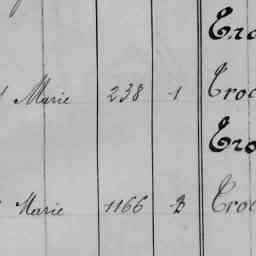 Cro
Marie 238 1 Croc
Cro
Marie 1166 Croc